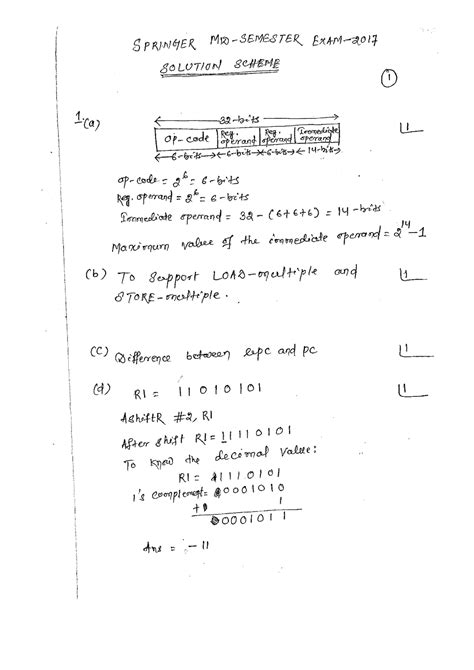 SPRINGER MID-SEMESTER EXAM-2017
SOLUTION SCHEME
1
1.(a)
32-bits
1
op-code Reg. operand Reg. operand Immediate operand
6-bits 6-bits 6-bits 14-bits
op-code = 2^6 = 6-bits
Reg. operand = 2^6 = 6-bits
Immediate operand = 32 - (6+6+6) = 14-bits
Maximum value of the immediate operand = 2^14-1
(b) To support LOAD-multiple and 1
STORE-multiple.
(c) Difference between and pc 1
(d) R1 = 11010101 1
AshiftR #2, R1
After shift R1 = 11110101
To know the decimal value:
R1 = 11110101
1's complement = 00001010
+ 1
00001011
Ans = -11